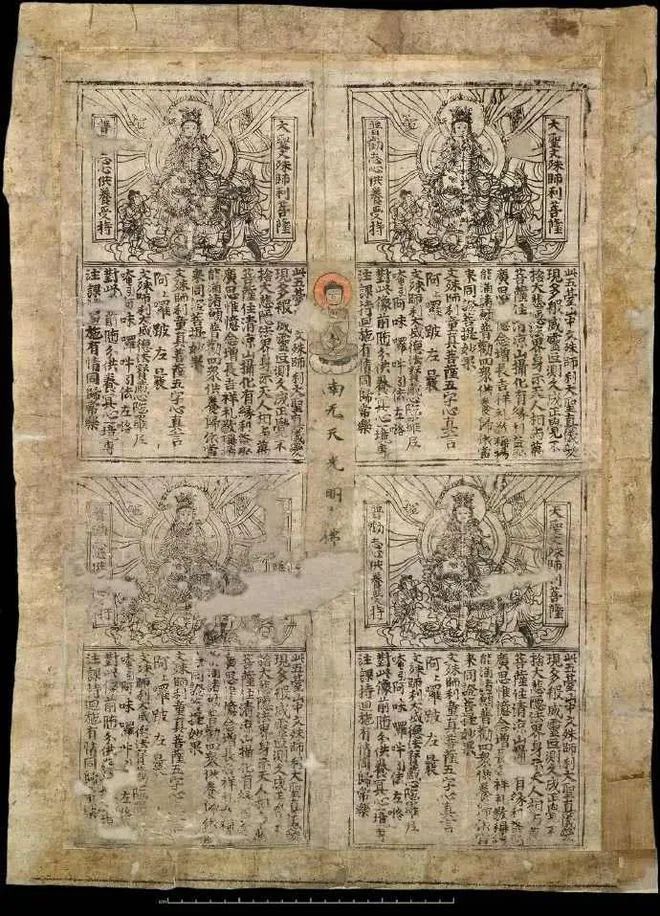 大聖文殊師利菩薩
普勸志心供養受持
此五臺山中文殊師利大聖真儀變
現多般威靈叵測久成正覺不
捨大悲隱法界身示天人相与萬
菩薩住清涼山攝化有緣利益
廣思惟憶念增長吉祥利敬稱揚
能滿諸願普勸四眾供養歸依當
來同證菩提妙果
文殊師利童真菩薩五字心真言
阿上囉跛左曩
文殊師利大威德法寶藏心陀羅尼
唵引阿味囉吽引佉左洛
對此像前隨分供養冀心專
注課持迴施有情同歸常樂
大聖文殊師利菩薩
普志心供養受持
此五臺山中文殊師利大聖真儀變
現多般威靈叵測久成正覺不
捨大悲隱法界身示天人相与萬
菩薩住清涼山攝化有緣利益
廣思惟憶念增長吉祥利敬稱揚
能滿諸願普勸四眾供養歸依當
來同證菩提妙果
文殊師利童真菩薩五字心真言
阿上囉跛左曩
文殊師利大威德法寶藏心陀羅尼
唵引阿味囉吽引佉左洛
對此前隨分供養冀心專
注課迴施有情同歸常樂
南无天光明佛
大聖文殊師利菩薩
普勸志心供養受持
此五臺山中文殊師利大聖真儀變
現多般威靈叵測久成正覺不
捨大悲隱法界身示天人相与萬
菩薩住清涼山攝有緣利益
廣思惟憶念增長吉祥利敬稱揚
能滿諸願普勸四眾供養歸依當
來同證菩提妙果
文殊師利童真菩薩五字心真言
阿上囉跛左曩
文殊師利大威德法寶藏心陀羅尼
唵引阿味囉吽引佉左洛
對此像前隨分供養冀心專
注課持迴施有情同歸常樂
此五臺山中文殊師利大聖真儀變
現多般威靈叵測久成正覺不
捨大悲隱法界身示天人相与萬
菩薩住清涼山攝化有緣利益
廣思惟憶念增長吉祥利敬稱
能滿諸願普勸四眾供養歸依
同證菩提妙果
文殊師利童真菩薩五字心
阿上囉跛左曩
文殊師利大威德法寶藏心陀羅尼
唵引阿味囉吽引佉左洛
對此像前隨分供養冀心專
注課持迴施有情同歸常樂